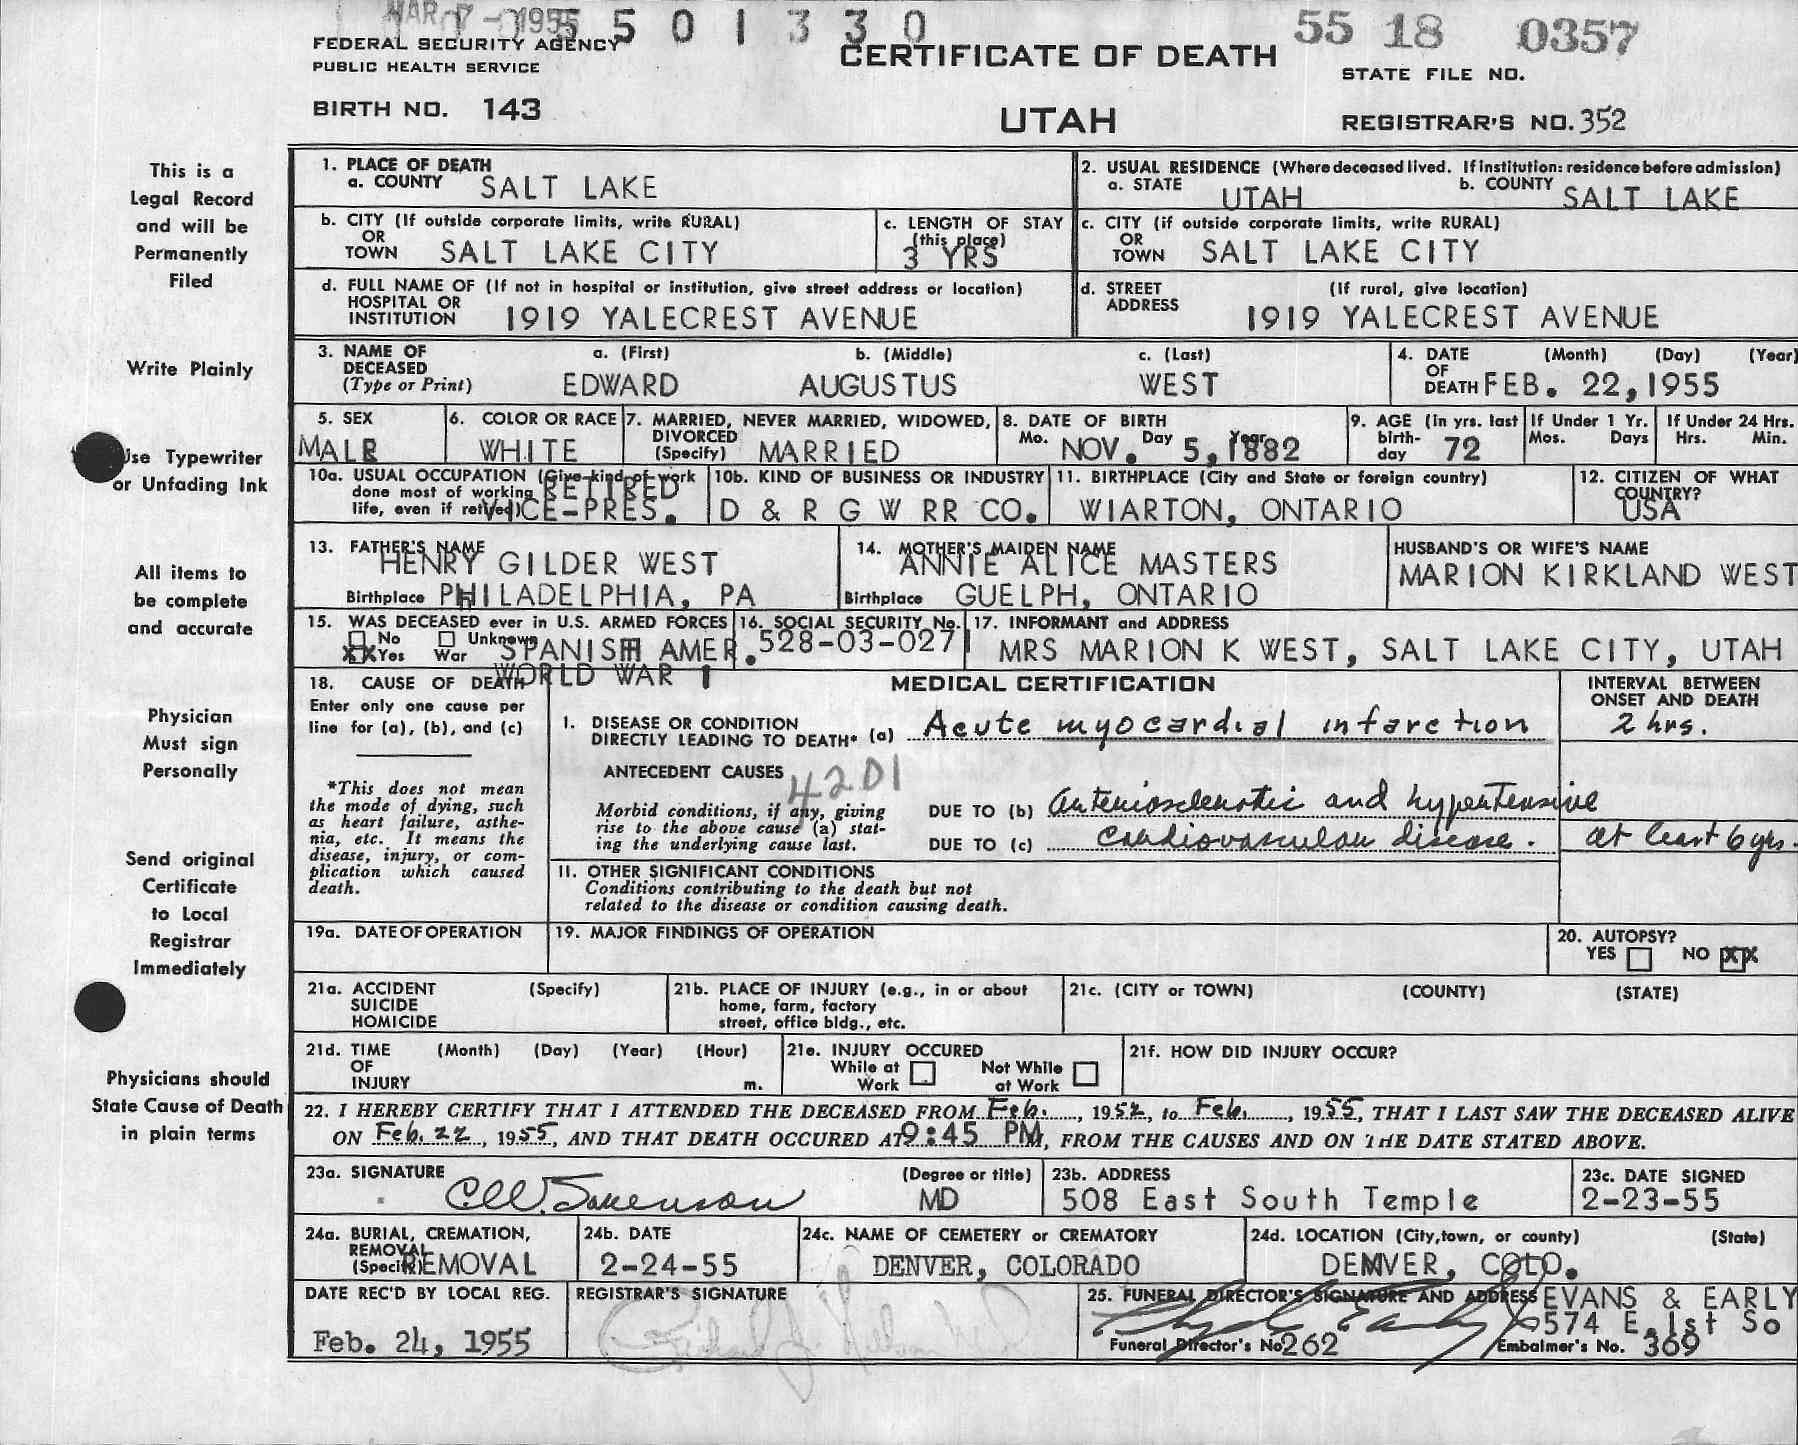 MAR 7 - 1955
5501330
55 18 0357
FEDERAL SECURITY AGENCY
PUBLIC HEALTH SERVICE
CERTIFICATE OF DEATH
STATE FILE NO.
BIRTH NO. 143
UTAH
REGISTRAR'S NO. 352
This is a
Legal Record
and will be
Permanently
Filed
Write Plainly
Use Typewriter
or Unfading Ink
All items to
be complete
and accurate
Physician
Must sign
Personally
Send original
Certificate
to Local
Registrar
Immediately
Physicians should
State Cause of Death
in plain terms
1. PLACE OF DEATH
a. COUNTY SALT LAKE
2. USUAL RESIDENCE (Where deceased lived. If institution: residence before admission)
a. STATE UTAH b. COUNTY SALT LAKE
b. CITY (If outside corporate limits, write RURAL)
OR
TOWN SALT LAKE CITY
c. LENGTH OF STAY
(this place)
3 YRS
c. CITY (if outside corporate limits, write RURAL)
OR
TOWN SALT LAKE CITY
d. FULL NAME OF (If not in hospital or institution, give street address or location)
HOSPITAL OR
INSTITUTION 1919 YALECREST AVENUE
d. STREET (If rural, give location)
ADDRESS 1919 YALECREST AVENUE
3. NAME OF a. (First) b. (Middle) c. (Last)
DECEASED
(Type or Print) EDWARD AUGUSTUS WEST
4. DATE (Month) (Day) (Year)
OF
DEATH FEB. 22, 1955
5. SEX
MALE
6. COLOR OR RACE
WHITE
7. MARRIED, NEVER MARRIED, WIDOWED,
DIVORCED
(Specify) MARRIED
8. DATE OF BIRTH
Mo. Day Year
NOV. 5, 1882
9. AGE (in yrs. last
birth-
day 72
If Under 1 Yr.
Mos. Days
If Under 24 Hrs.
Hrs. Min.
10a. USUAL OCCUPATION (Give kind of work
done most of working
life, even if retired)
RETIRED
VICE-PRES.
10b. KIND OF BUSINESS OR INDUSTRY
D & R G W RR CO.
11. BIRTHPLACE (City and State or foreign country)
WIARTON, ONTARIO
12. CITIZEN OF WHAT
COUNTRY?
USA
13. FATHER'S NAME
HENRY GILDER WEST
Birthplace PHILADELPHIA, PA
14. MOTHER'S MAIDEN NAME
ANNIE ALICE MASTERS
Birthplace GUELPH, ONTARIO
HUSBAND'S OR WIFE'S NAME
MARION KIRKLAND WEST
15. WAS DECEASED ever in U.S. ARMED FORCES
No Unknown
XX Yes War SPANISH AMER.
WORLD WAR 1
16. SOCIAL SECURITY No.
528-03-027
17. INFORMANT and ADDRESS
MRS MARION K WEST, SALT LAKE CITY, UTAH
18. CAUSE OF DEATH
Enter only one cause per
line for (a), (b), and (c)
*This does not mean
the mode of dying, such
as heart failure, asthe-
nia, etc. It means the
disease, injury, or com-
plication which caused
death.
MEDICAL CERTIFICATION
INTERVAL BETWEEN
ONSET AND DEATH
1. DISEASE OR CONDITION
DIRECTLY LEADING TO DEATH* (a) Acute myocardial infarction 2 hrs.
ANTECEDENT CAUSES
4201
Morbid conditions, if any, giving
rise to the above cause (a) stat-
ing the underlying cause last.
DUE TO (b) arteriosclerotic and hypertensive
DUE TO (c) cardiovascular disease. at least 6 yrs.
11. OTHER SIGNIFICANT CONDITIONS
Conditions contributing to the death but not
related to the disease or condition causing death.
19a. DATE OF OPERATION
19. MAJOR FINDINGS OF OPERATION
20. AUTOPSY?
YES NO XX
21a. ACCIDENT (Specify)
SUICIDE
HOMICIDE
21b. PLACE OF INJURY (e.g., in or about
home, farm, factory
street, office bldg., etc.
21c. (CITY or TOWN) (COUNTY) (STATE)
21d. TIME (Month) (Day) (Year) (Hour)
OF
INJURY m.
21e. INJURY OCCURED
While at Not While
Work at Work
21f. HOW DID INJURY OCCUR?
22. I HEREBY CERTIFY THAT I ATTENDED THE DECEASED FROM Feb., 1952, to Feb., 1955, THAT I LAST SAW THE DECEASED ALIVE
ON Feb. 22, 1955, AND THAT DEATH OCCURED AT 9:45 PM, FROM THE CAUSES AND ON THE DATE STATED ABOVE.
23a. SIGNATURE (Degree or title)
Sorenson MD
23b. ADDRESS
508 East South Temple
23c. DATE SIGNED
2-23-55
24a. BURIAL, CREMATION,
REMOVAL
(Specify) REMOVAL
24b. DATE
2-24-55
24c. NAME OF CEMETERY or CREMATORY
DENVER, COLORADO
24d. LOCATION (City, town, or county) (State)
DENVER, COLO.
DATE REC'D BY LOCAL REG.
Feb. 24, 1955
REGISTRAR'S SIGNATURE
25. FUNERAL DIRECTOR'S SIGNATURE AND ADDRESS EVANS & EARLY
574 E. 1st So
Funeral Director's No 262 Embalmer's No. 369